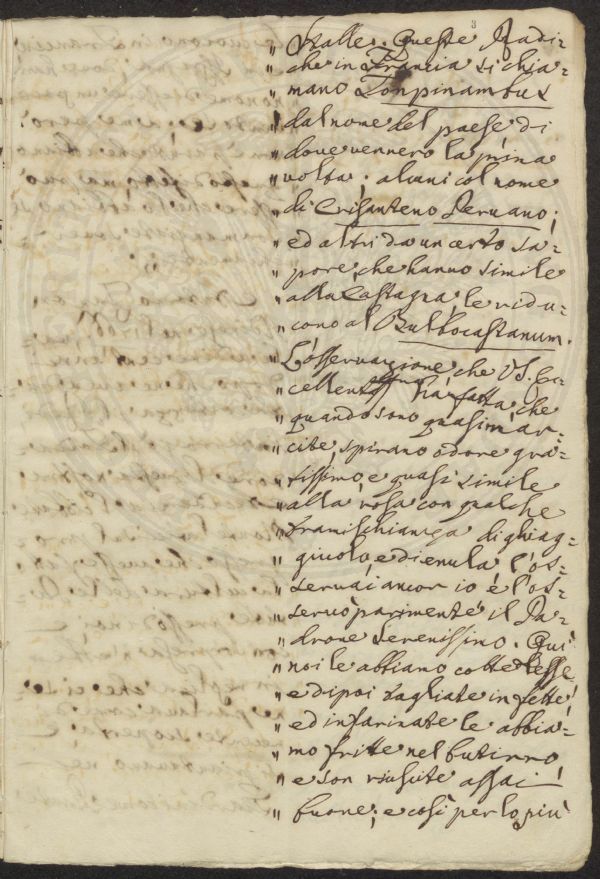 3
" Stalle. Queste Radi=
" che in Francia si chia=
" mano Tonpinambus
" dal nome del paese di
" dove vennero la prima
" volta; alcuni col nome
" di Crisanteno Peruano;
" ed altri da un certo sa=
" pore, che hanno simile
" alla Castagna, le ridu=
" cono al Bulbocastanum.
" L'osservazione, che V.S. Ec=
" cellentma ha fatta che
" quando sono quasi mar=
" cite, spirano odore gra=
" tissimo, e quasi simile
" alla rosa con qualche
" framischianza di ghiag=
" giuolo, e di enula l'os=
" servai ancor io e l'os=
" servò parimente il Pa=
" drone Serenissimo. Qui
" noi le abbiamo cotte lesse
" e dipoi tagliate in fette,
" ed infarinate le abbia=
" mo fritte nel butirro,
" e son riuscite assai
" buone; e così per lo più